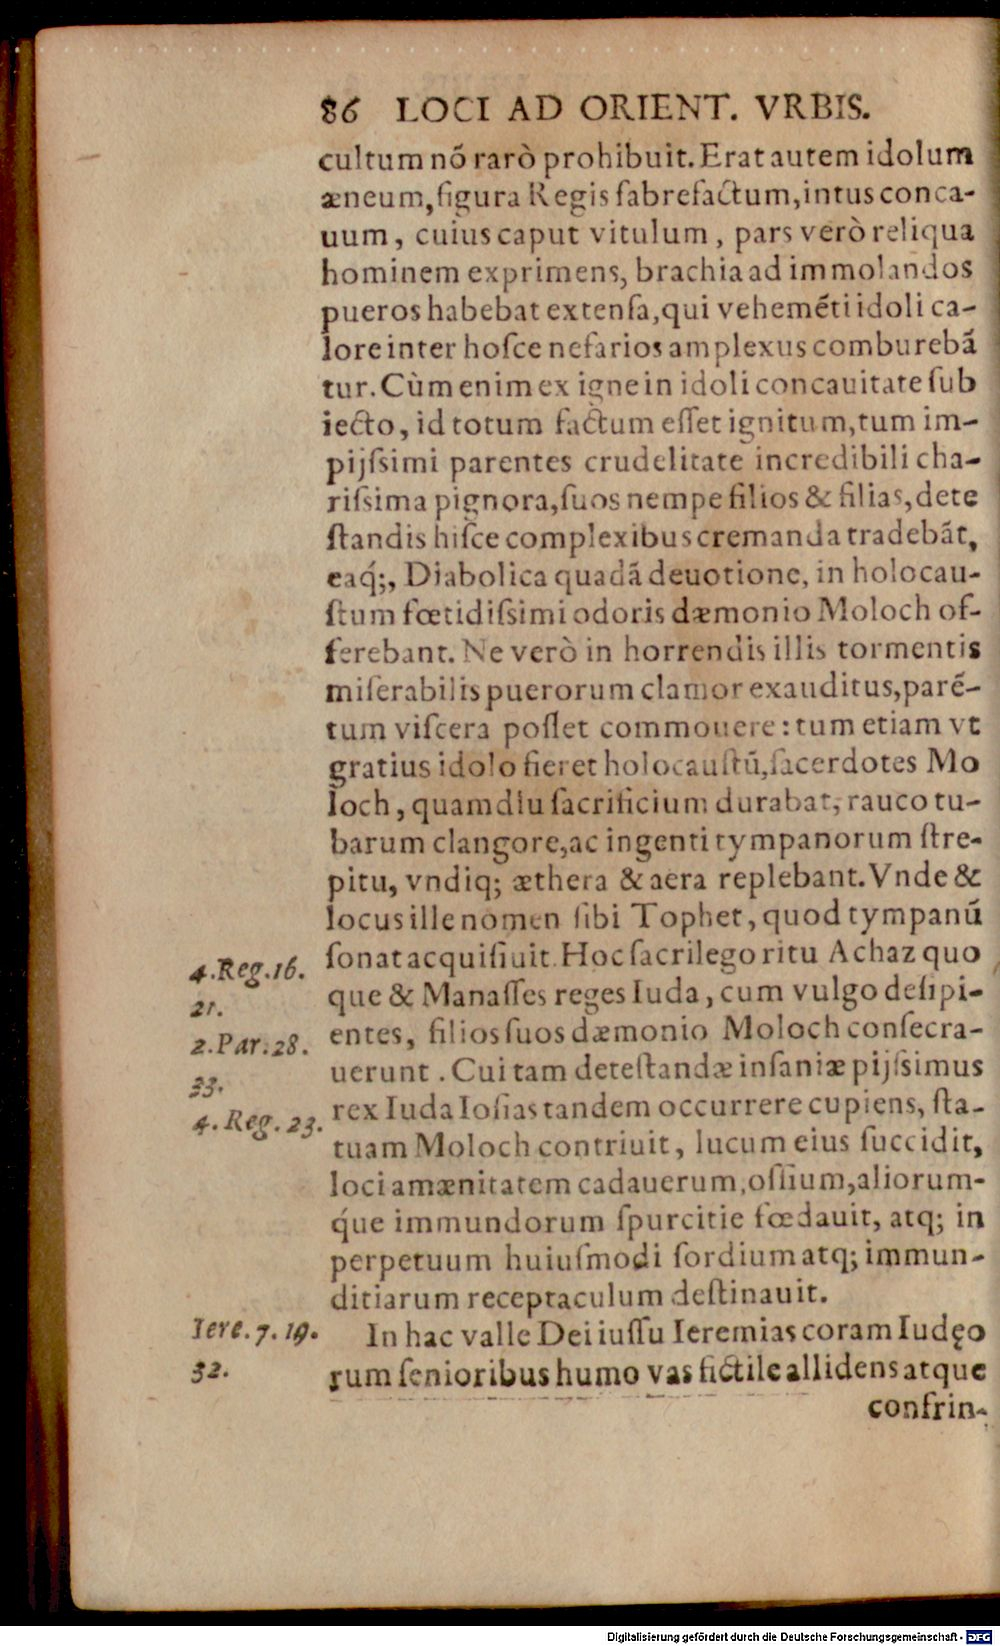 86 LOCI AD ORIENT. VRBIS.
cultum nõ rarò prohibuit. Erat autem idolum
æneum, figura Regis fabrefactum, intus conca-
uum, cuius caput vitulum, pars verò reliqua
hominem exprimens, brachia ad immolandos
pueros habebat extenſa, qui vehemẽti idoli ca-
lore inter hoſce nefarios amplexus comburebã
tur. Cùm enim ex igne in idoli concauitate ſub
iecto, id totum factum eſſet ignitum, tum im-
pijſsimi parentes crudelitate incredibili cha-
riſsima pignora, ſuos nempe filios & filias, dete
ſtandis hiſce complexibus cremanda tradebãt,
eaq́;, Diabolica quadã deuotione, in holocau-
ſtum fœtidiſsimi odoris dæmonio Moloch of-
ferebant. Ne verò in horrendis illis tormentis
miſerabilis puerorum clamor exauditus, parẽ-
tum viſcera poſſet commouere: tum etiam vt
gratius idolo fieret holocauſtũ, ſacerdotes Mo
loch, quamdiu ſacrificium durabat, rauco tu-
barum clangore, ac ingenti tympanorum ſtre-
pitu, vndiq; æthera & aera replebant. Vnde &
locus ille nomen ſibi Tophet, quod tympanũ
ſonat acquiſiuit. Hoc ſacrilego ritu Achaz quo
4. Reg. 16.
que & Manaſſes reges Iuda, cum vulgo deſipi-
21.
entes, filios ſuos dæmonio Moloch conſecra-
2. Par. 28.
uerunt. Cui tam deteſtandæ inſaniæ pijſsimus
33.
rex Iuda Ioſias tandem occurrere cupiens, ſta-
4. Reg. 23.
tuam Moloch contriuit, lucum eius ſuccidit,
loci amænitatem cadauerum, oſſium, aliorum-
q́ue immundorum ſpurcitie fœdauit, atq; in
perpetuum huiuſmodi ſordium atq; immun-
ditiarum receptaculum deſtinauit.
Iere. 7. 19.
In hac valle Dei iuſſu Ieremias coram Iudęo
32.
rum ſenioribus humo vas fictile allidens atque
confrin-
Digitalisierung gefördert durch die Deutsche Forschungsgemeinschaft - DFG